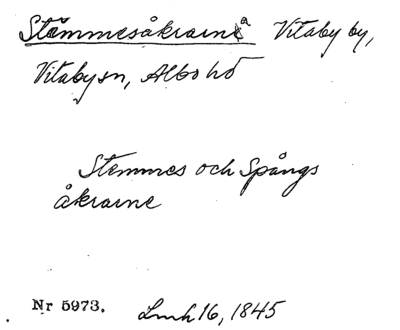 Stämmesåkrarna Vitaby by,
Vitaby sn, Albo hd
Stemmes och Spångs
åkrarne
Nr 5973. Lmh 16, 1845